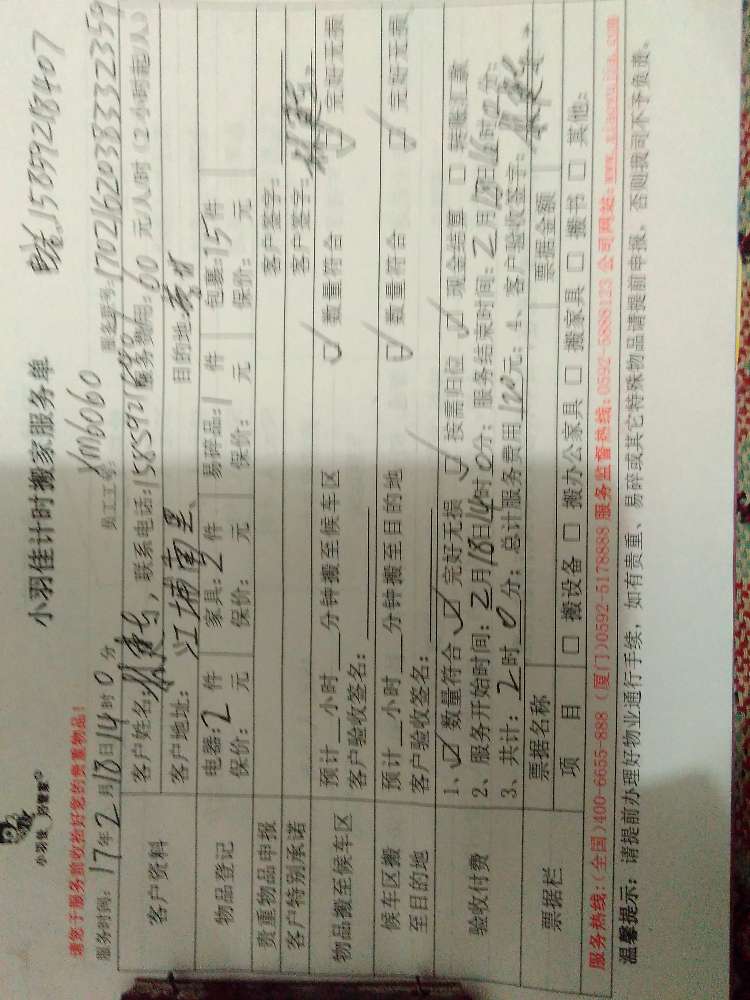 小羽佳 好管家
小羽佳计时搬家服务单
15359218407
请您于服务前收拾好您的贵重物品!
服务时间: 17年2月18日14时0分 员工工号: XM6060 服务单号: 1702162938332359
客户资料
客户姓名: 联系电话: 服务费用: 60 元/人/时 (2小时起/人)
客户地址: 江埔南里 目的地:
物品登记
电器: 2 件 家具: 2 件 易碎品: 1 件 包裹: 15 件
保价: 元 保价: 元 保价: 元 保价: 元
贵重物品申报 客户签字:
客户特别承诺 客户签字:
物品搬至候车区
预计__小时__分钟搬至候车区 ☑ 数量符合 ☑ 完好无损
客户验收签名:
候车区搬至目的地
预计__小时__分钟搬至目的地 ☑ 数量符合 ☑ 完好无损
客户验收签名:
验收付费
1、☑ 数量符合 ☑ 完好无损 ☑ 按需归位 ☑ 现金结算 □ 转账汇款
2、服务开始时间: 2月18日14时0分; 服务结束时间: 2月18日16时0分;
3、共计: 2时0分; 总计服务费用 120 元; 4、客户验收签字:
票据栏
票据名称 票据金额
项 目 □ 搬设备 □ 搬办公家具 □ 搬家具 □ 搬书 □ 其他:
服务热线:(全国)400-6655-888 (厦门)0592-5178888 服务监督热线:0592-5888123 公司网站: www.xiaoyujia.com
温馨提示: 请提前办理好物业通行手续, 如有贵重、易碎或其它特殊物品请提前申报, 否则我司不予负责。